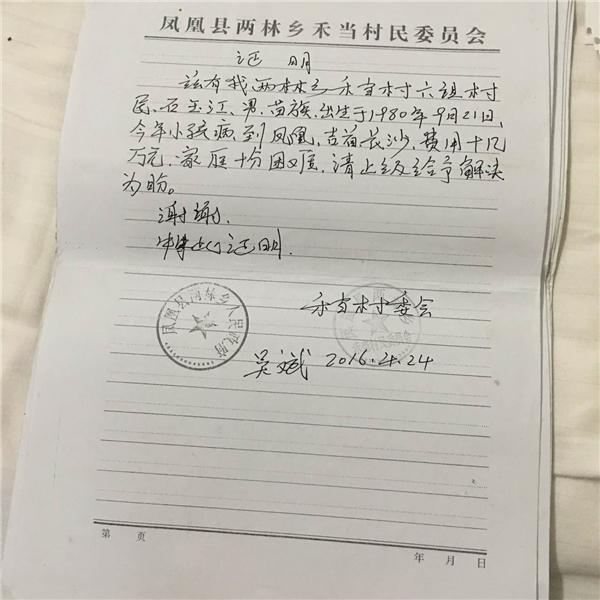 凤凰县两林乡禾当村民委员会
证明
兹有我两林乡禾当村六组村
民,石玉江,男,苗族,出生于1980年9月21日,
今年小孩病到凤凰,吉首长沙,费用十几
万元,家庭十分困难,请上级给予解决
为盼。
谢谢,
特此证明.
禾当村村委会
凤凰县两林乡人民政府
吴斌 2016.4.24
第 页
年 月 日